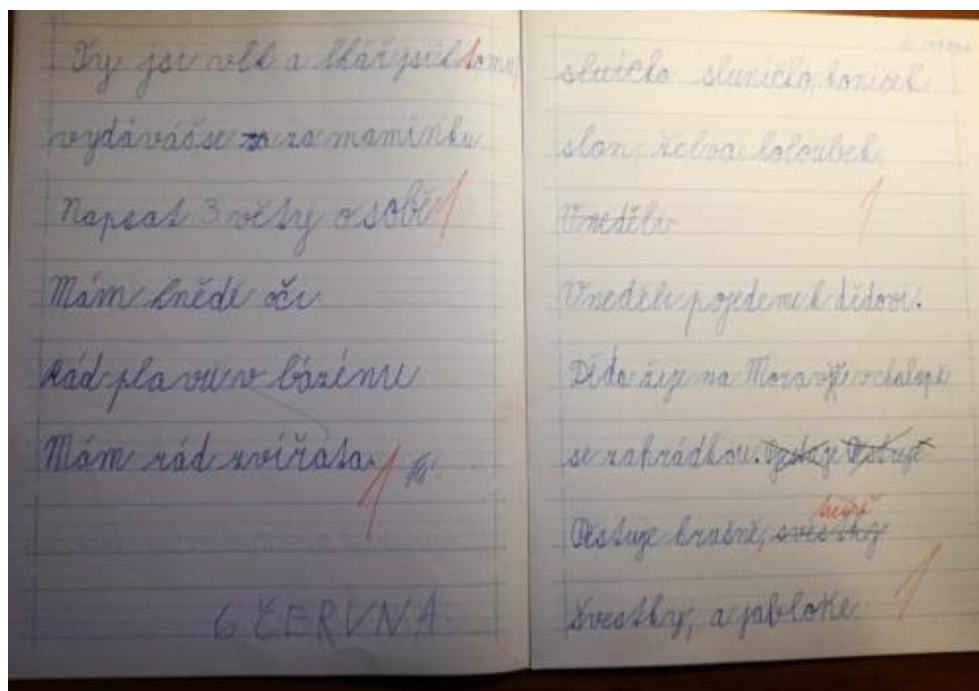 Ty jsi vlk a lhářjsi k tomu,
vydávášse za maminku
Napsat 3 věty o sobě 1
Mám hnědé oči
Rád plavu v bázénu
Mám rád zvířata. 1
6 ČERVNA
6 června
sluníčko, koníček
slon, želva, holoubek, 1
Vneděli
Vneděli pojedeme k dědovi.
Děda žije na Moravě v chalupě
se zahrádkou.
Pěstuje krásné, švestky
švestky, a jabloke 1